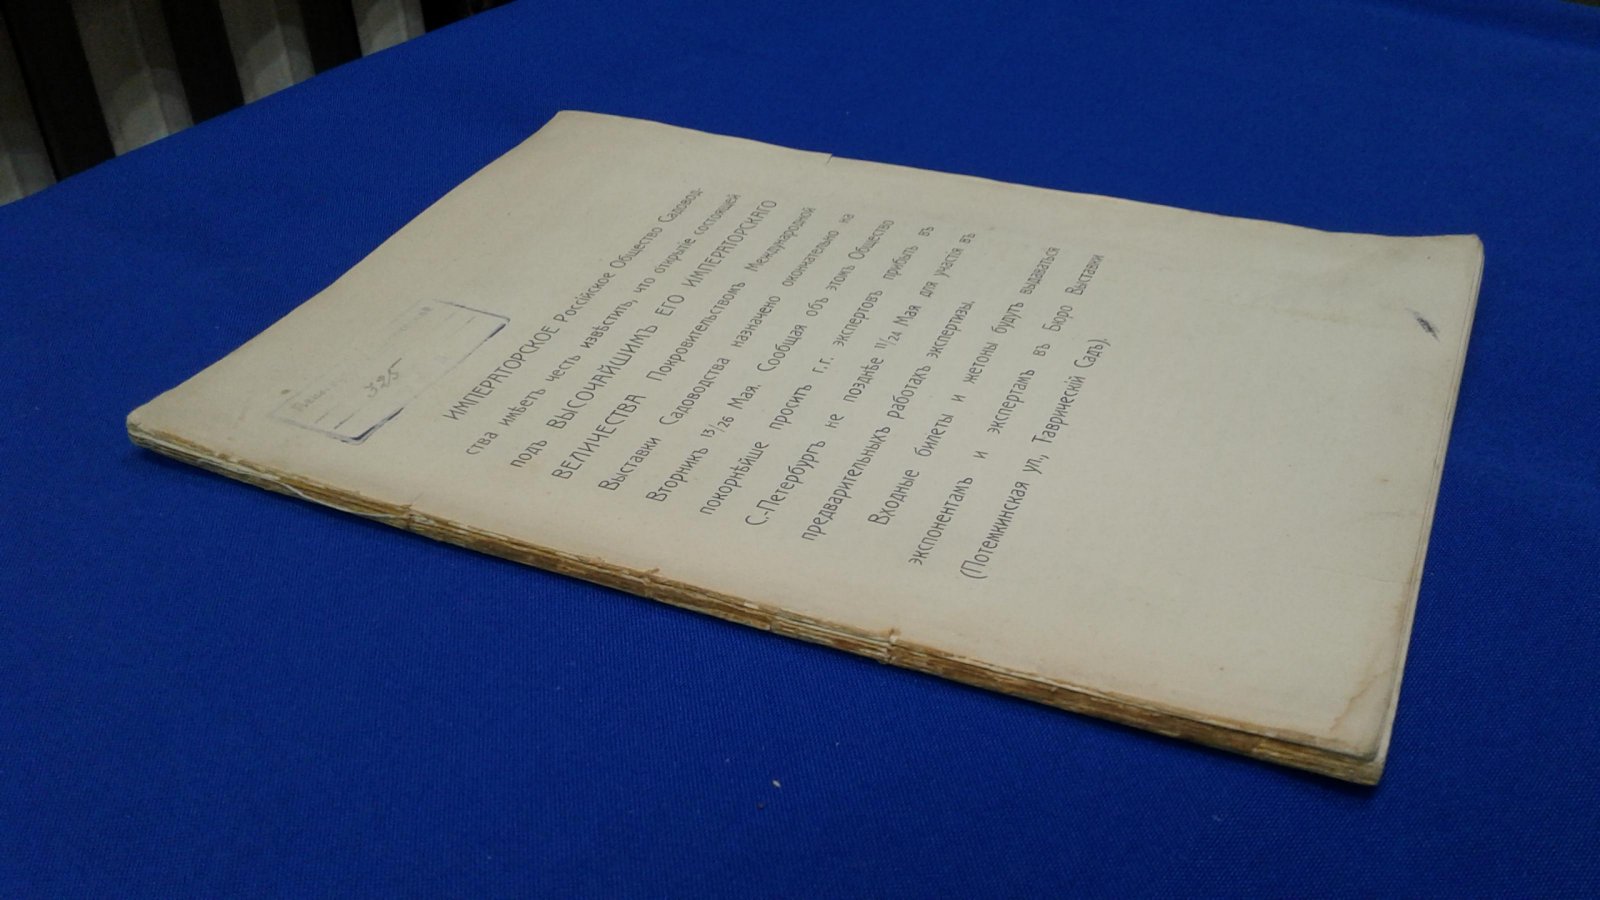 325
ИМПЕРАТОРСКОЕ Россійское Общество Садовод-
ства имѣетъ честь извѣстить, что открытіе состоящей
подъ ВЫСОЧАЙШИМЪ ЕГО ИМПЕРАТОРСКАГО
ВЕЛИЧЕСТВА Покровительствомъ Международной
Выставки Садоводства назначено окончательно на
Вторникъ 13/26 Мая. Сообщая объ этомъ Общество
покорнѣйше проситъ г.г. экспертовъ прибыть въ
С.-Петербургъ не позднѣе 11/24 Мая для участія въ
предварительныхъ работахъ экспертизы.
Входные билеты и жетоны будутъ выдаваться
экспонентамъ и экспертамъ въ Бюро Выставки
(Потемкинская ул., Таврическій Садъ).